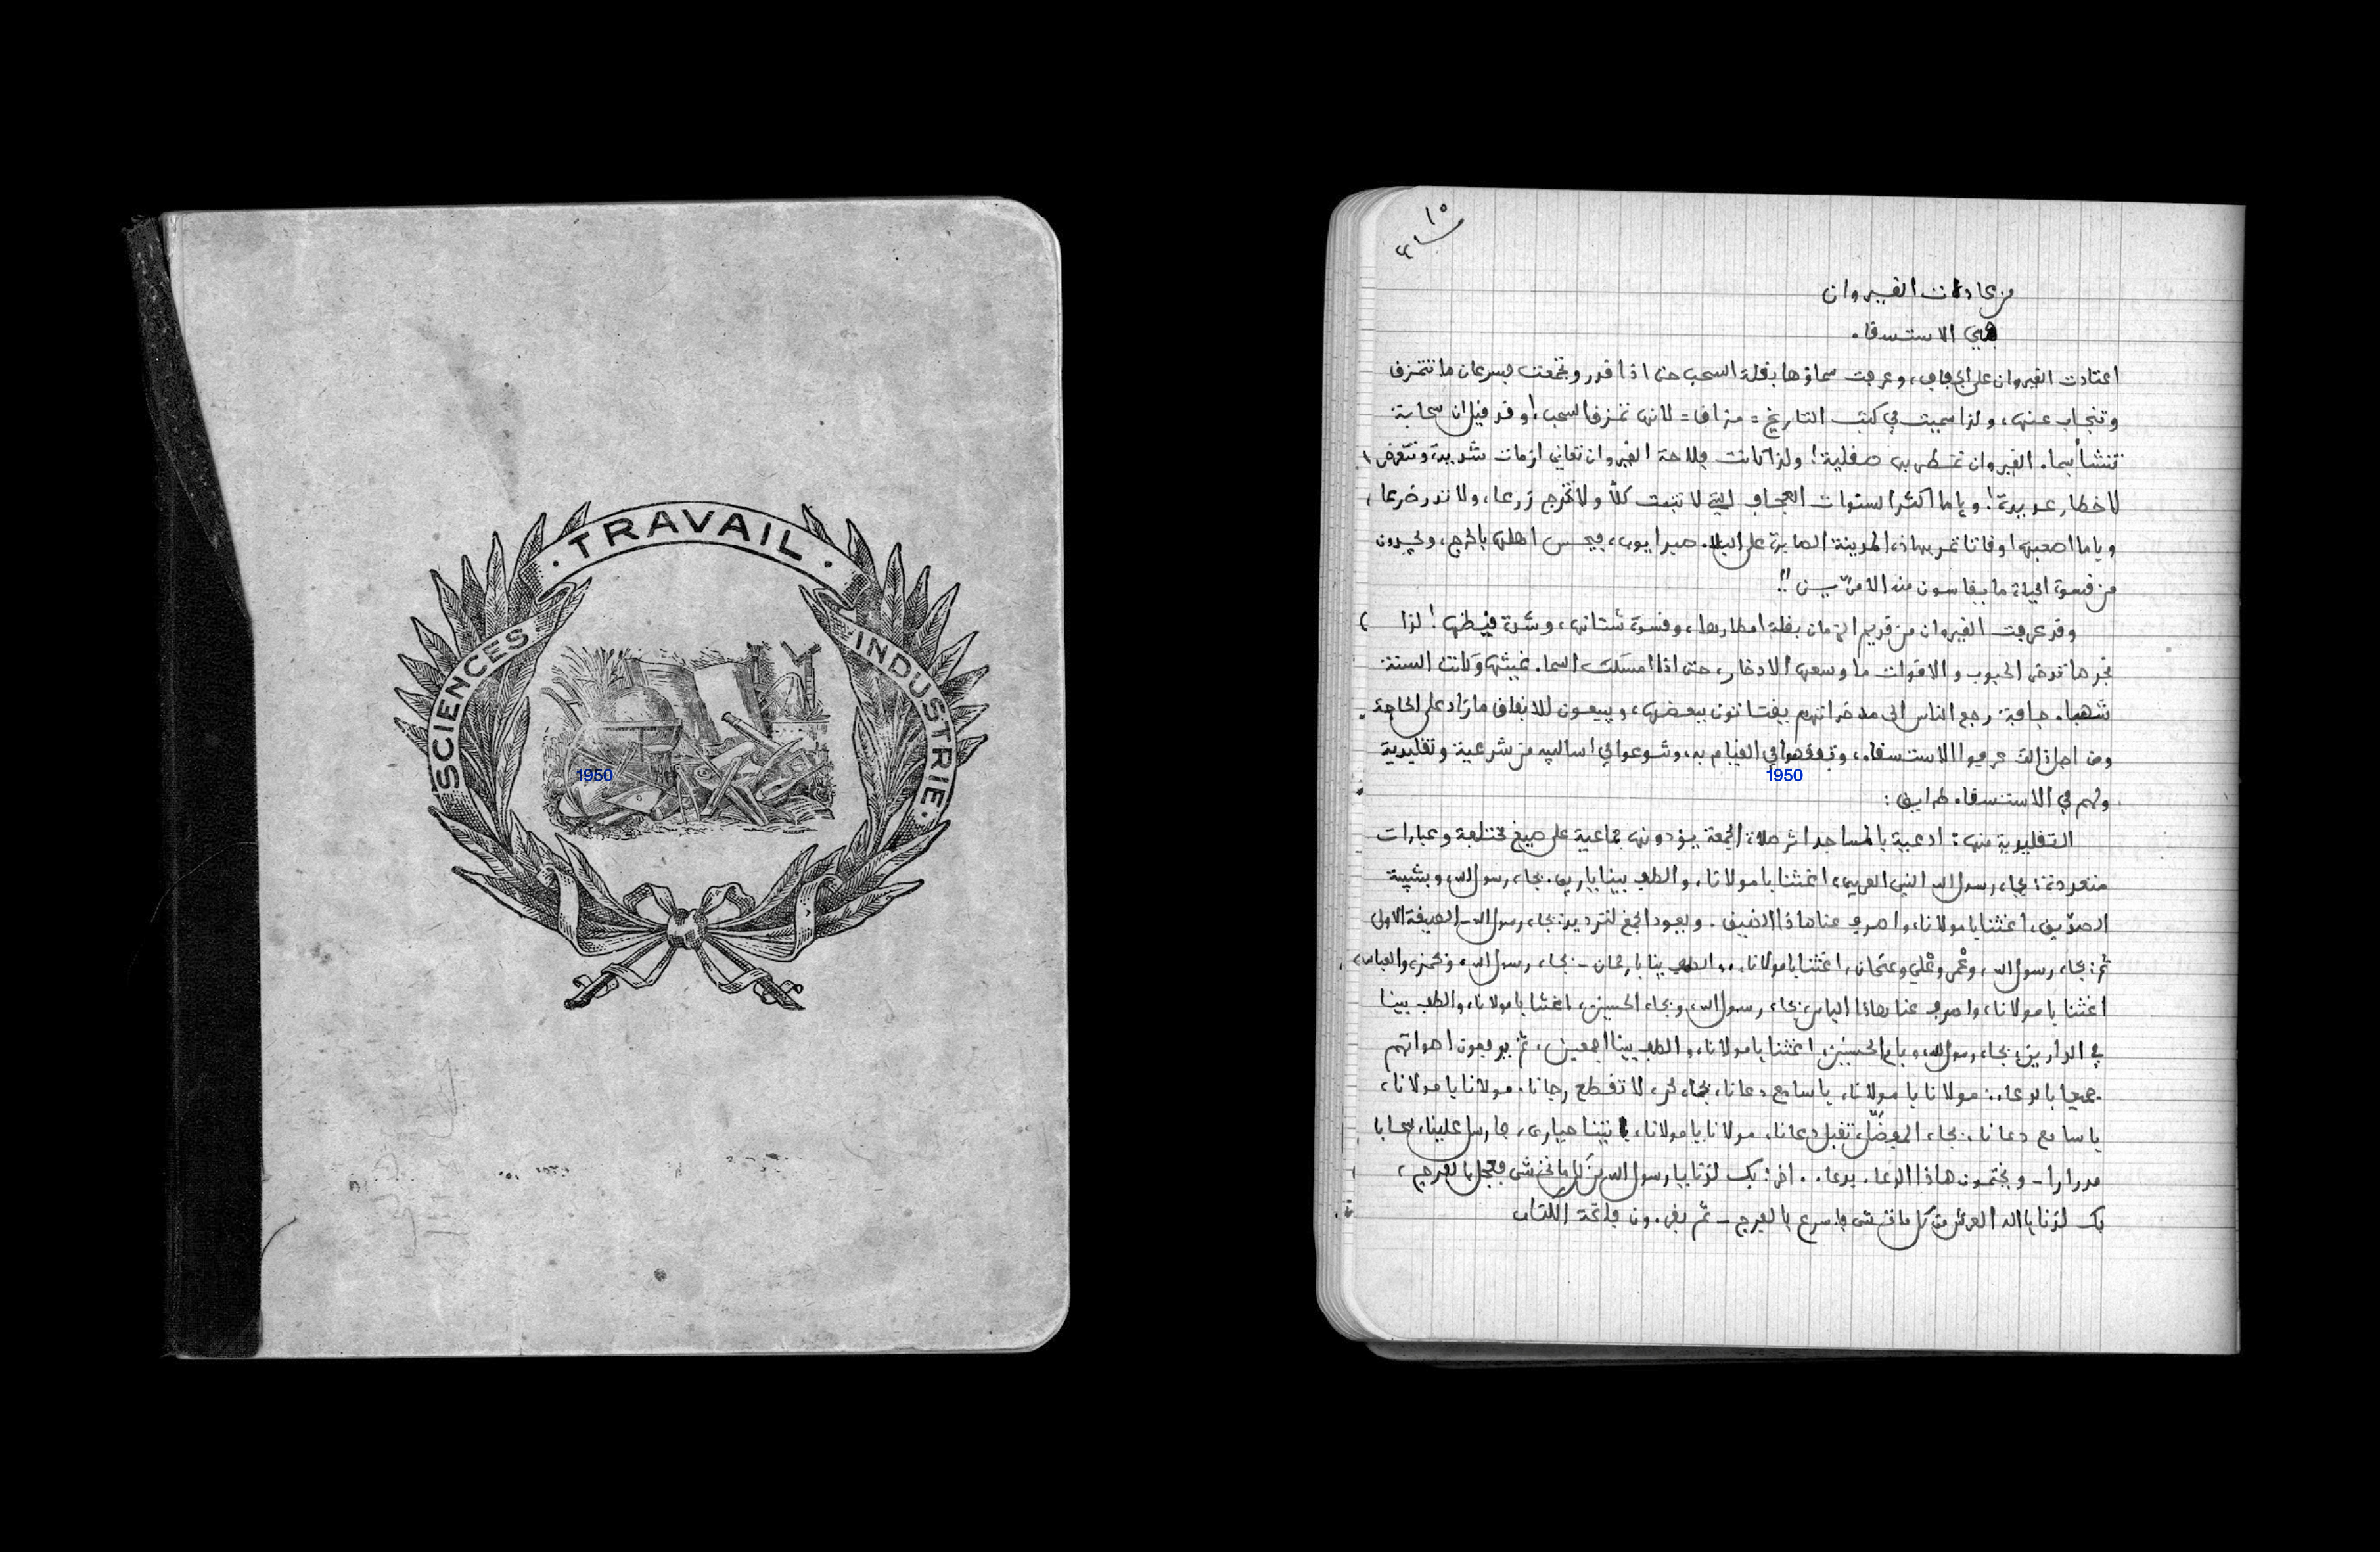 TRAVAIL
SCIENCES
INDUSTRIE
1950
١٠
من عادات القيروان
في الاستسقاء
اعتادت القيروان على الجفاف، وعرفت سماؤها بقلة السحب حتى اذا قدر وتجمعت فسرعان ما تتمزق
وتنجاب عنها، ولذا سميت في كتب التاريخ = مزاق = لانها تمزق السحب! وقد قيل ان سحابة
تنشأ بسماء القيروان تمطر بها صقلية! ولذا كانت فلاحة القيروان تعاني ازمات شديدة وتتعرض
لاخطار عديدة! وياما اكثر السنوات العجاف التي لا تنبت كلأ ولا تخرج زرعا، ولا تدر ضرعا،
وياما اصعبها اوقاتا تمر بهاذه المدينة الصابرة على البلاء صبر ايوب، فيحس اهلها بالحرج، ويجدون
من قسوة الحياة ما يقاسون منه الامرّين!!
وقد عرفت القيروان من قديم الزمان بقلة امطارها، وقسوة شتائها، وشدة قيظها! لذا
تجدها تدخر الحبوب والاقوات ما وسعها الادخار، حتى اذا امسكت السماء غيثها وكانت السنة
شهباء جافة رجع الناس الى مدخراتهم يقتاتون ببعضها، ويبيعون للانفاق ما زاد على الحاجة.
ومن اجل ذالك عرفوا الاستسقاء، وتفقهوا في القيام به، ونوعوا في اساليبه من شرعية وتقليدية
1950
ولهم في الاستسقاء طرايق:
التقليدية منها: ادعية بالمساجد اثر صلاة الجمعة يؤدونها جماعية على صيغ مختلفة وعبارات
متعددة: بجاه رسول الله النبي العربي، اغثنا يا مولانا، والطف بينا ياربي. بجاه رسول الله، وبشيبة
الصدّيق، اغثنا يا مولانا، واصرف عنا هاذا الضيق. ويعود الجمع لترديد: بجاه رسول الله - الصيغة الاولى
ثم: بجاه رسول الله، وعمر وعلي وعثمان، اغثنا يا مولانا، والطف بينا يا رحمان - بجاه رسول الله، وحمزة والعباس،
اغثنا يا مولانا، واصرف عنا هاذا الباس، بجاه رسول الله، وبجاه الحسين، اغثنا يا مولانا، والطف بينا
في الدارين، بجاه رسول الله، وبام الحسنين، اغثنا يا مولانا، والطف بينا اجمعين، ثم يرفعون اصواتهم
جميعا بالدعاء: مولانا يا مولانا، يا سامع دعانا، بجاه لا تقطع رجانا. مولانا يا مولانا،
يا سامع دعانا، بجاه المفضّل تقبل دعانا. مولانا يا مولانا، بتنا حيارى، فارسل علينا، سحابا
مدرارا - ويختمون هاذا الدعاء بدعاء اخر: بك لذنا يا رسول الله من كل ما نختشى فعجل بالفرج،
بك لذنا يا اله العرش من كل ما نختشى فاسرع بالفرج - ثم يقرءون فاتحة الكتاب